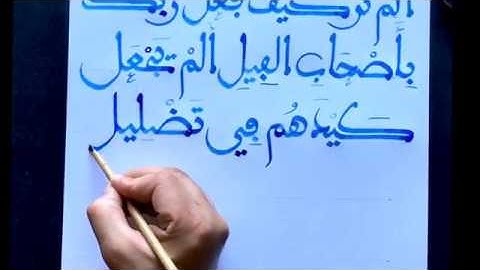 ألم تر كيف فعل ربك
بِأَصْحَابِ الفِيلِ أَلمْ يَجْعَل
كَيْدَهُم فِي تَضْلِيل